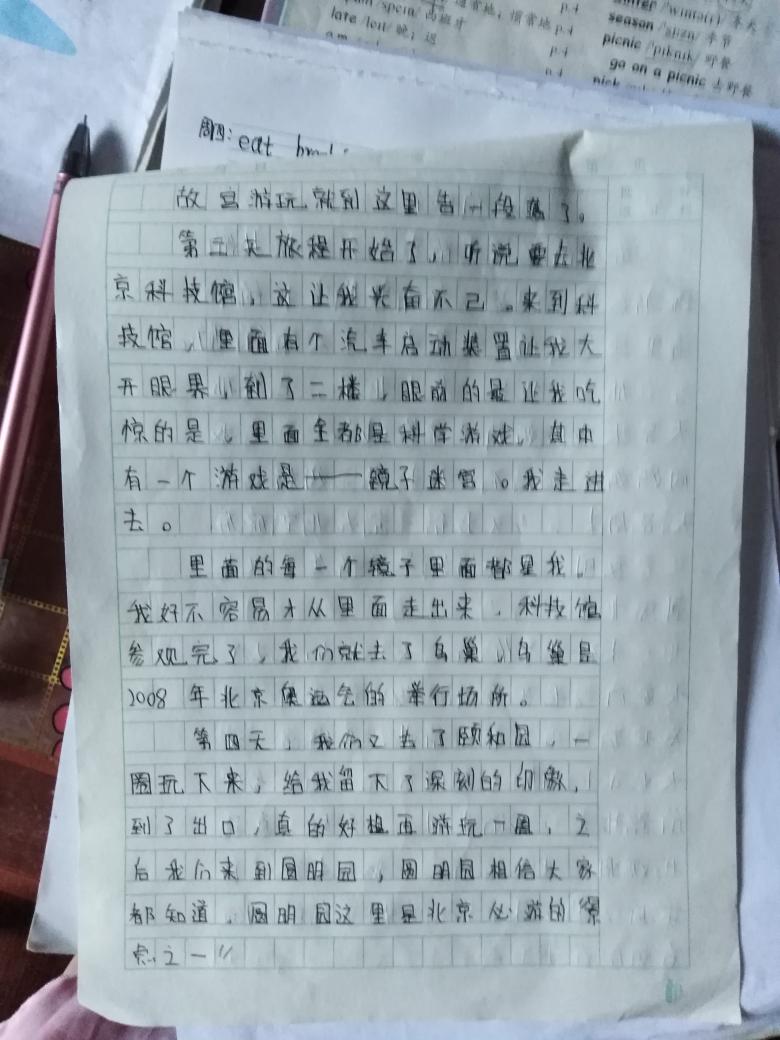 late /leɪt/ 晚；迟
p.4
p.4
p.4
p.4
season /ˈsiːzn/ 季节
picnic /ˈpɪknɪk/ 野餐
go on a picnic 去野餐
周四：eat
故宫游玩就到这里告一段落了。
第三天旅程开始了，听说要去北
京科技馆，这让我兴奋不已。来到科
技馆，里面有个汽车启动装置让我大
开眼果，到了二楼，眼前的最让我吃
惊的是，里面全都是科学游戏，其中
有一个游戏是——镜子迷宫。我走进
去。
里面的每一个镜子里面都是我。
我好不容易才从里面走出来，科技馆
参观完了，我们就去了鸟巢，鸟巢是
2008年北京奥运会的举行场所。
第四天，我们又去了颐和园，一
圈玩下来，给我留下了深刻的印象，
到了出口，真的好想再游玩一圈，之
后我们来到圆明园，圆明园相信大家
都知道，圆明园这里是北京必游的景
点之一